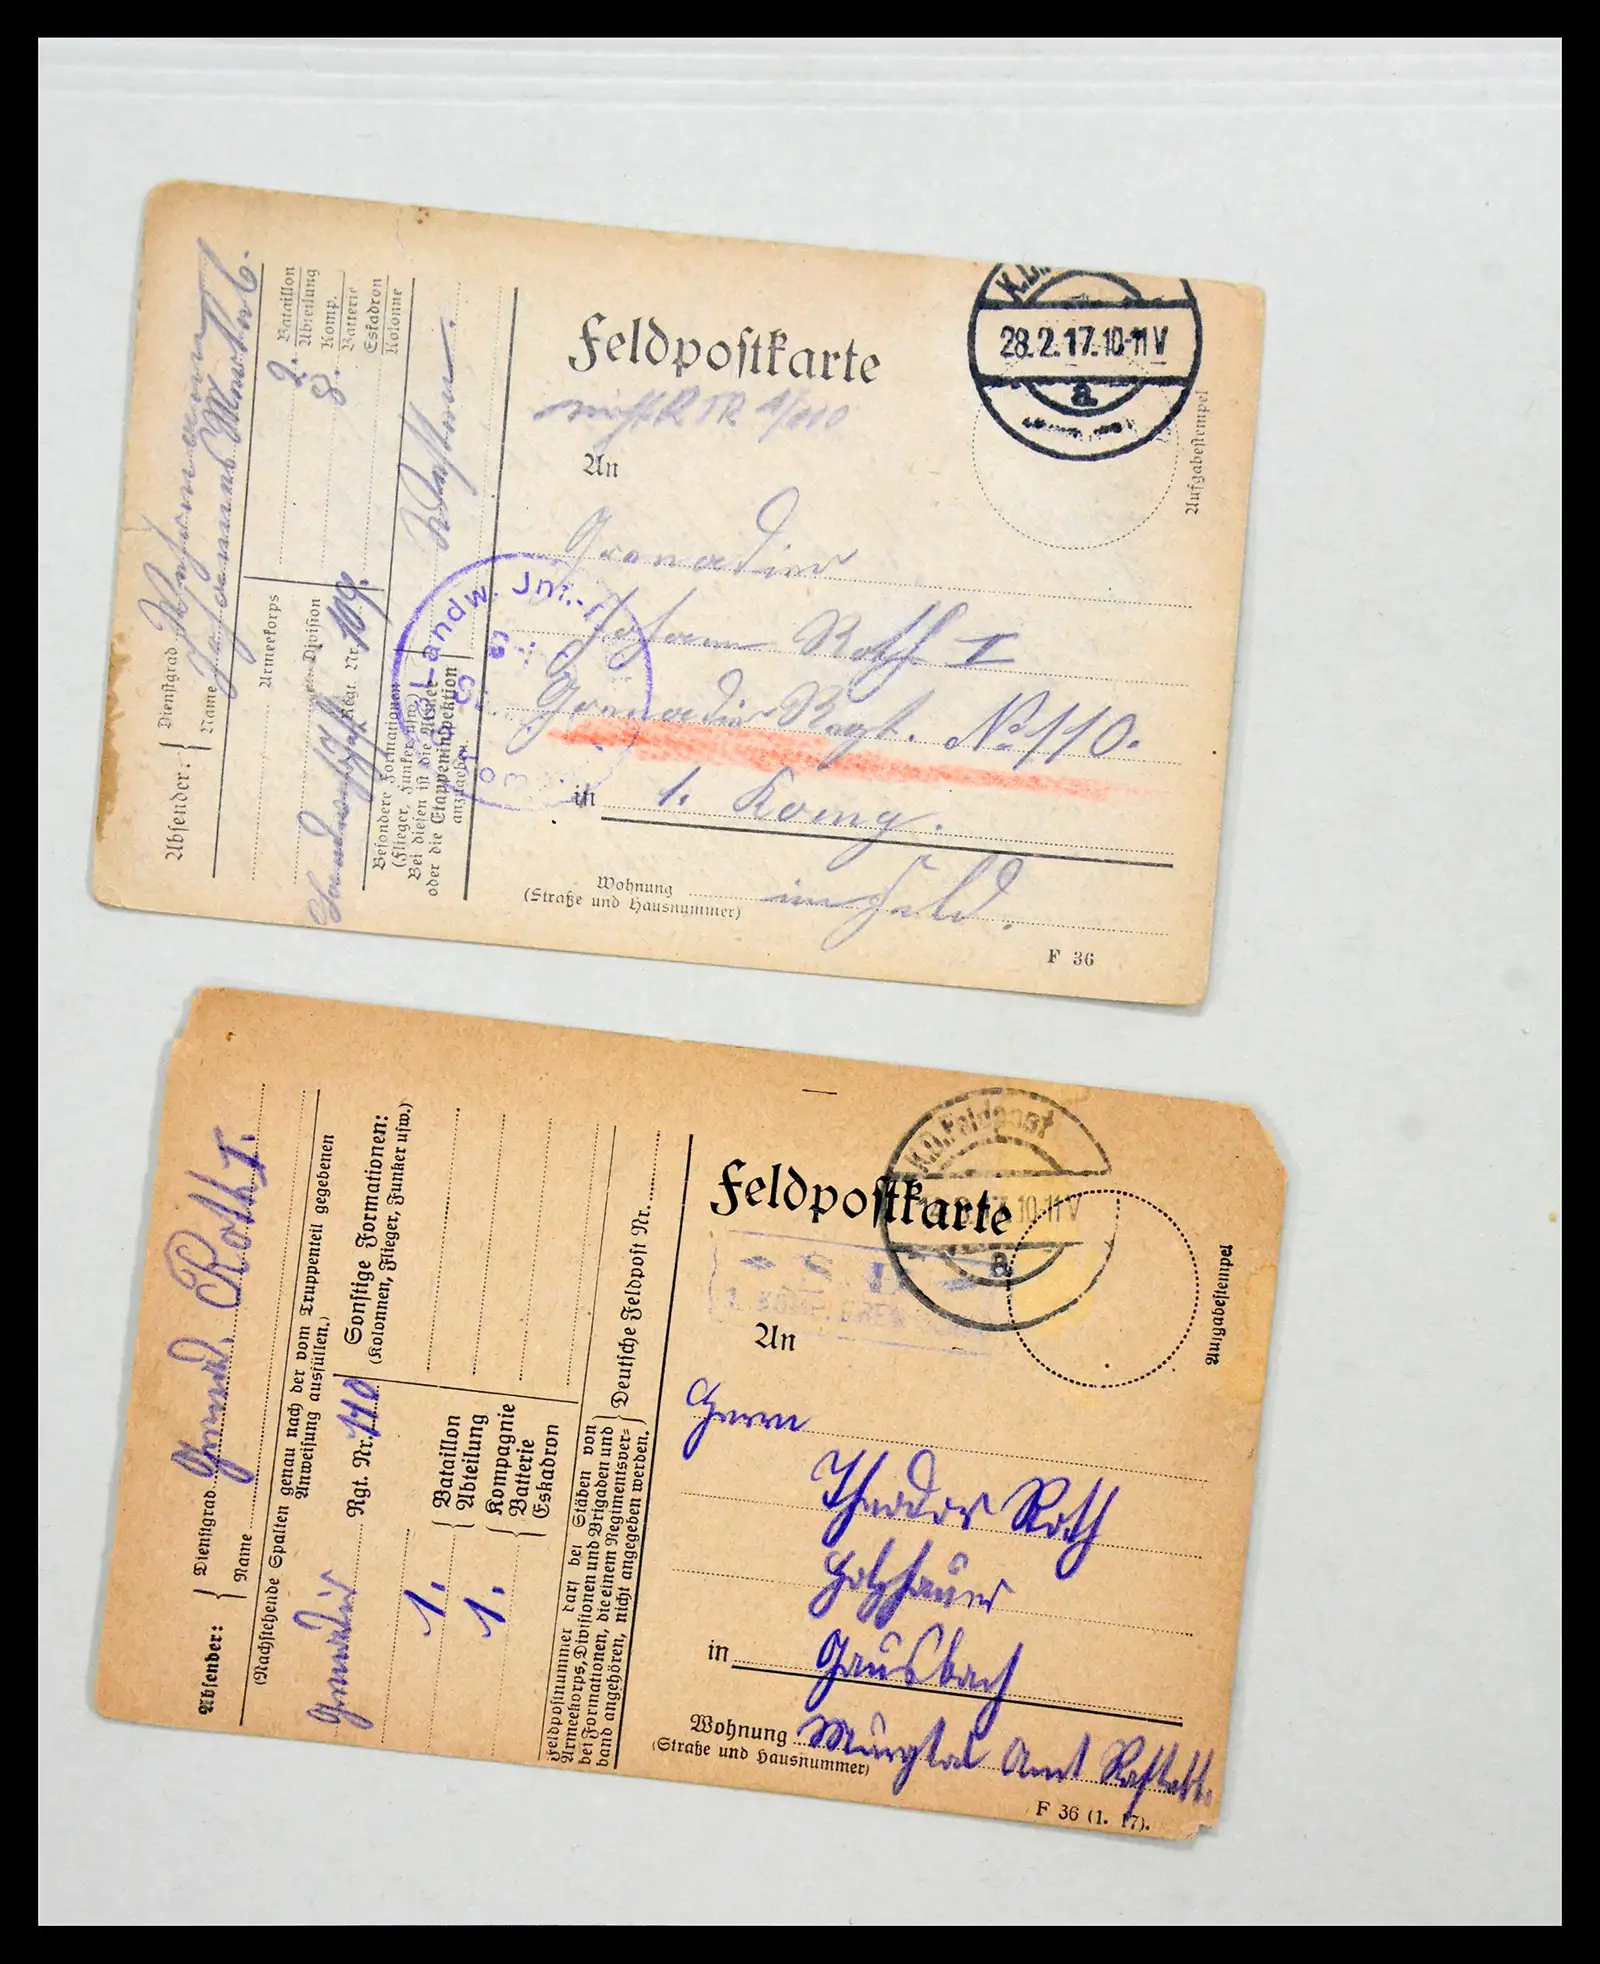 Feldpostkarte
28.2.17.10-11V
a
Aufgabestempel
An
Grenadier
Johann Roth I
Grenadier Regt. № 110.
in 1. Komp.
Wohnung im Feld.
(Straße und Hausnummer)
F 36
Absender: { Dienstgrad Wehrmann
Name Johannes
2. Bataillon
Abteilung
8. Komp.
Batterie
Eskadron
Kolonne
Armeekorps
Division
Landwehr Inf. Regt. Nr. 109.
Besondere Formationen
(Flieger, Funker usw.)
Bei diesen ist die Armee
oder die Etappeninspektion
anzugeben.
Westen.
Landw. Inf.-
Feldpostkarte
K.D. Feldpost
10-11V
a
Aufgabestempel
An
Herrn
Theodor Roth
Holzhauer
in Gausbach
Wohnung Murgtal Amt Rastatt.
(Straße und Hausnummer)
F 36 (1. 17).
Absender: { Dienstgrad Grenad.
Name Roth I.
(Nachstehende Spalten genau nach der vom Truppenteil gegebenen
Anweisung ausfüllen.)
Grenadier Rgt. Nr. 110
Sonstige Formationen:
(Kolonnen, Flieger, Funker usw.)
1. { Bataillon
Abteilung
1. { Kompagnie
Batterie
Eskadron
Feldpostnummer darf bei Stäben von
Armeekorps, Divisionen und Brigaden und
bei Formationen, die einem Regimentsver-
band angehören, nicht angegeben werden. } Deutsche Feldpost Nr.